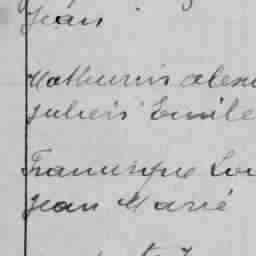 Jean
Mathurin Alex
Julien Emile
Françoise Lou
Jean Marie